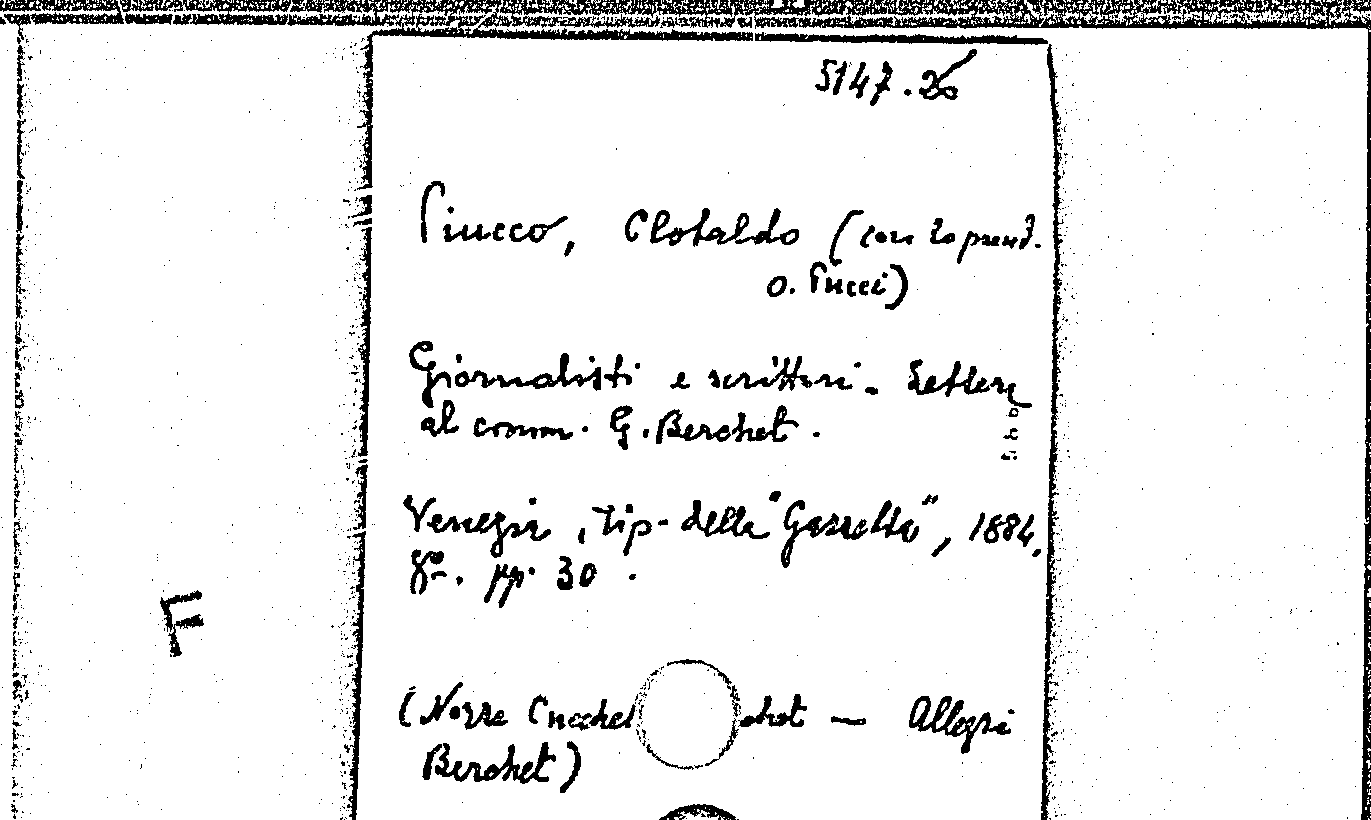 5147.26
Piucco, Clotaldo (con lo pseud.
O. Pucci)
Giornalisti e scrittori. Lettere
al comm. G. Berchet.
Venezia, tip. della "Gazzetta", 1884.
8º. pp. 30.
F
(Nozze chet — Allegri
Berchet)